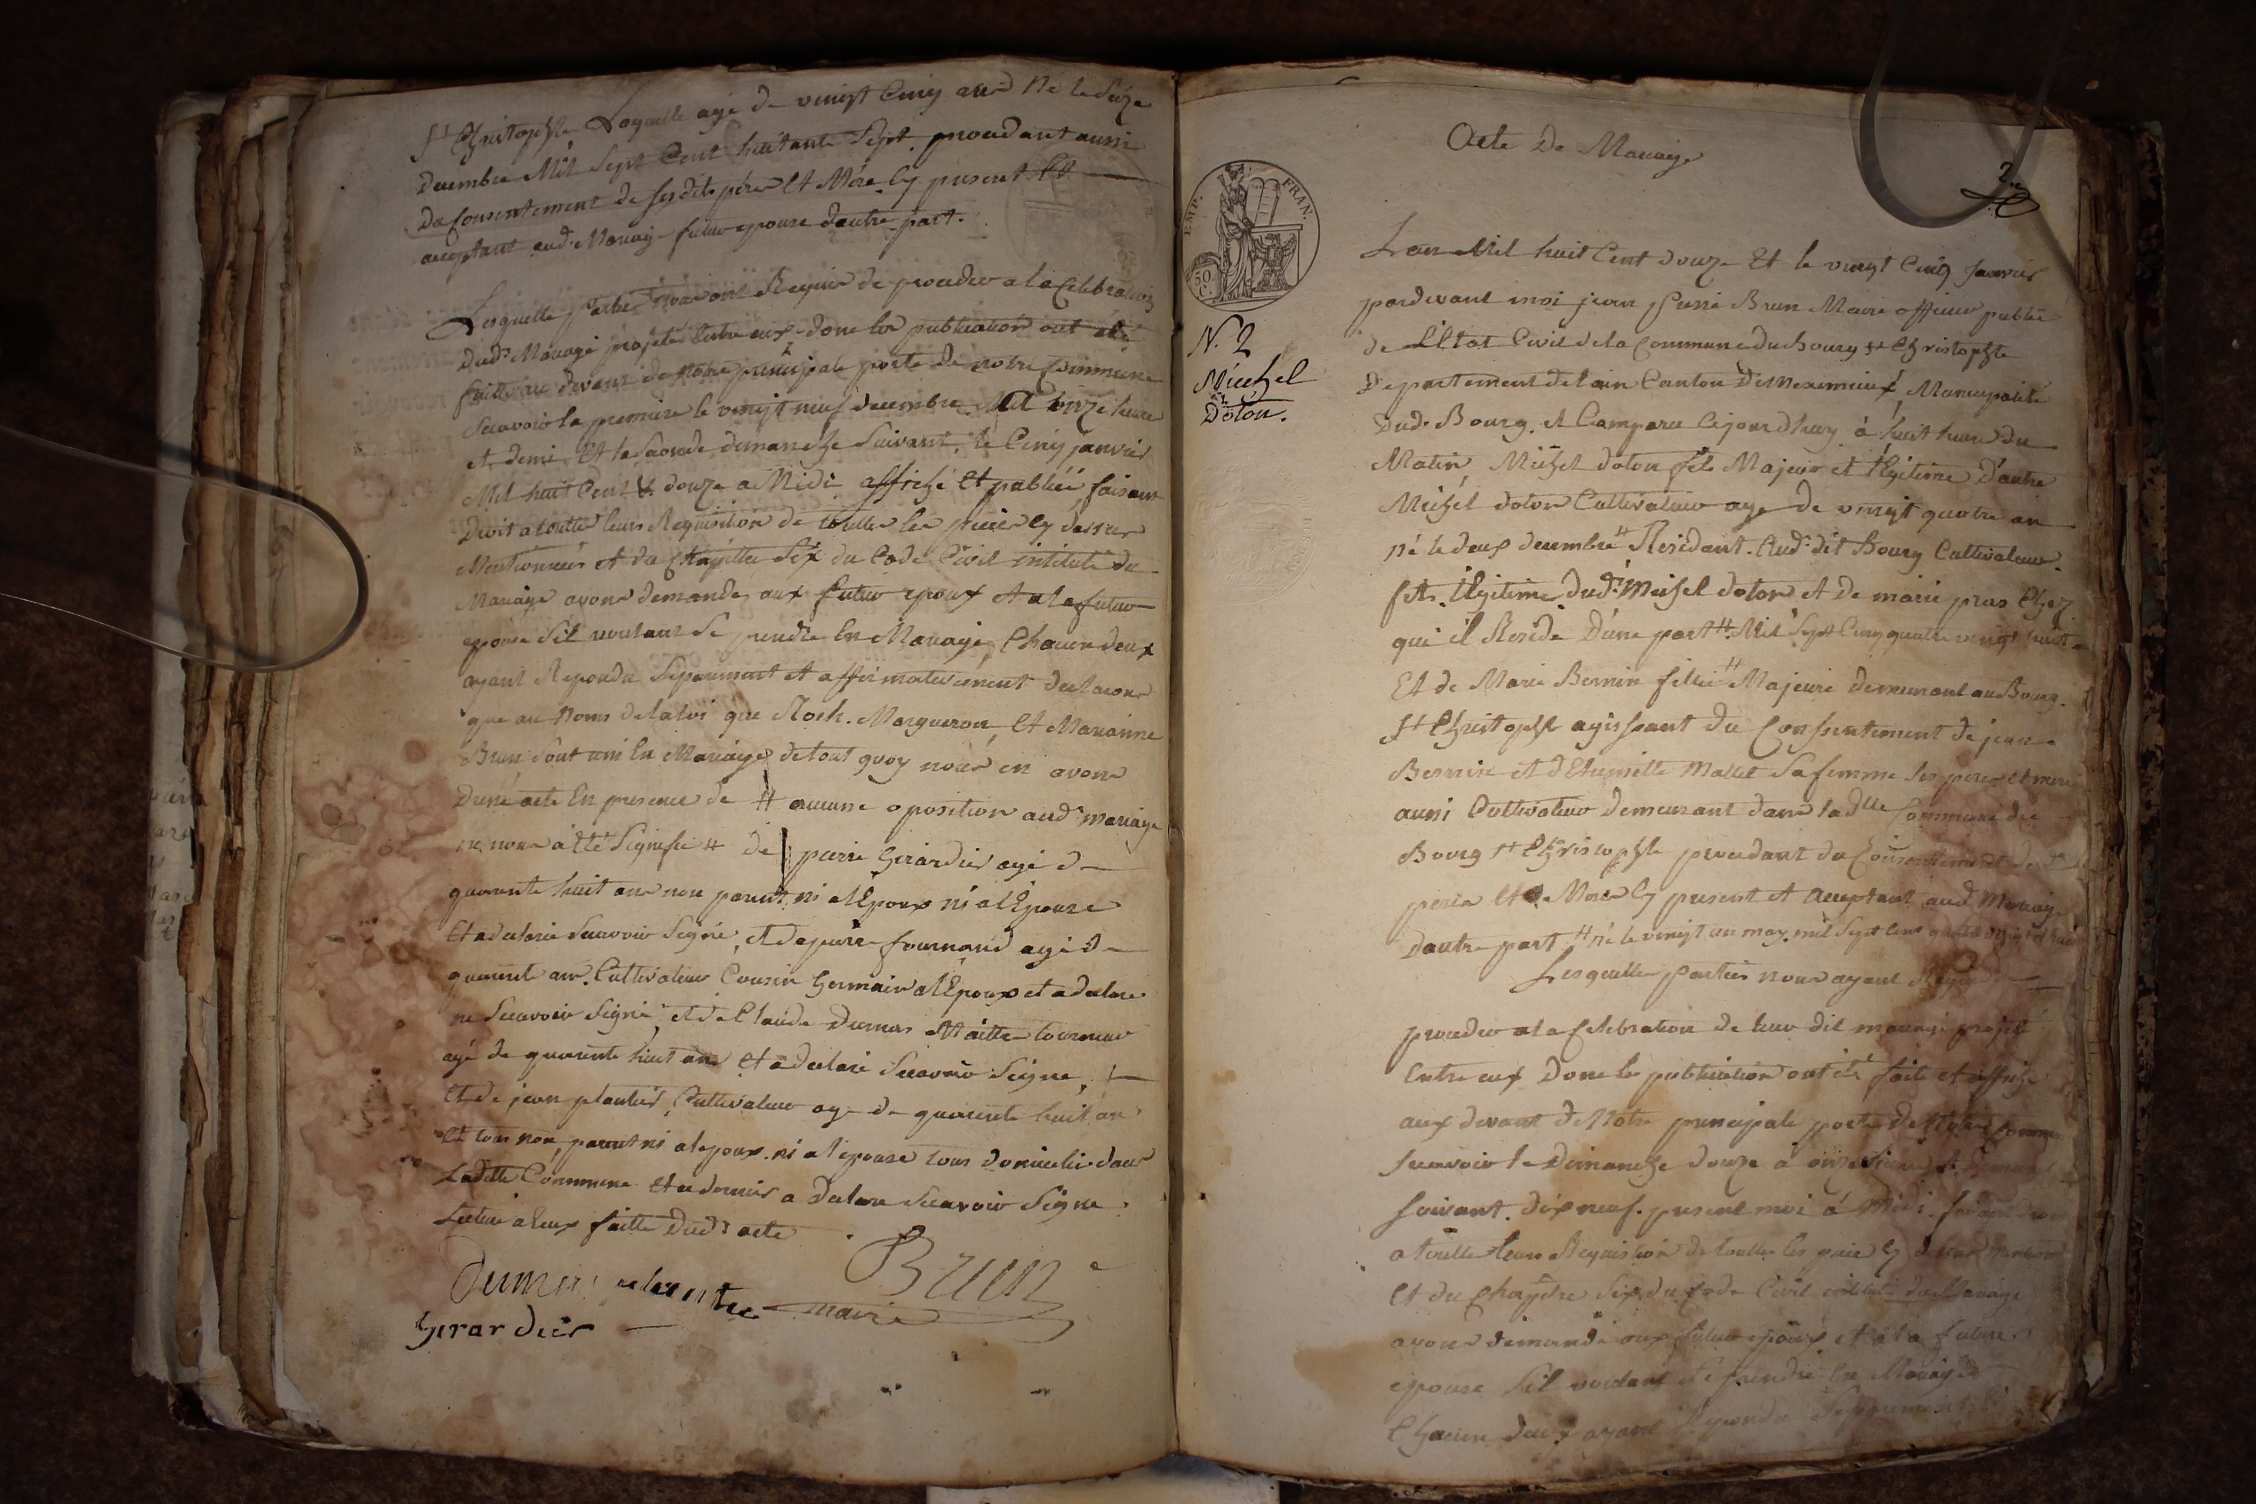 St Christophle Laquelle agé de vingt Cinq ans Né le Seize
decembre Mil Sept Cent huitante Sept. procedant aussi
du Consentement de ses dits pére et Mére Cy present et
acceptant aud. Mariage future epouse dautre part.
Lesquelle partie nous ont Requis de proceder a la Celebration
dud. Mariage projeté Entre eux dont les publication ont eté
faitte au devant de notre principale porte de notre Commune
Scavoir la premiere le vingt neuf decembre a onze heure
et demi Et la Seconde dimanche Suivant, le Cinq janvier
Mil huit Cent douze a Midi affiché et publiéé, faisant
Droit a toutte leurs Requisition de toutte les piece Cy dessus
Mentionneés et du Chapitre Six du Code Civil intitulé du
Mariage avons demandes aux futur epoux et a la future
epouse Sil veulent Se prendre En Mariage, Chacun deux
ayant Repondu Separement et affirmativement declarons
que au Noms de la loi que Roch. Margueron et Marianne
Brun Sont uni En Mariage de tout quoy nous en avons
Dréné acte En presence de # aucune oposition aud. mariage
ne nous a eté Signifié # de pierre Girardier agé de
quarente huit ans non parent ni a lEpoux ni a lEpouse
Et a declaré Scavoir Signé, et de pierre fournand agé de
quarente ans Cultivateur Cousin Germain a lEpoux et a declare
ne Scavoir Signé, et de Claude Dumas Maitre tourneur
agé de quarente huit ans et a declaré Scavoir Signe,
Et de jean plantier, Cultivateur age de quarente huit an
Et tous non parent ni a lepoux. ni a lepouse tous domicilié dans
Laditte Commune et ce dernier a Declare Scavoir Signe
Lecture a Eux faitte Dud. acte
Brun
Dumas
maire
Girardier
Acte De Mariage
EMP. FRAN.
50 C.
N. 2
Michel
Doton.
Lan Mil huit Cent douze Et le vingt Cinq Janvier
pardevant moi jean pierre Brun Maire officier public
de LEtat Civil de la Commune du bourg St Christophle
Departement de lain Canton de Meximieux, Municipalité
Dud. Bourg. Et Comparu Cejourdhuy à huit heure du
Matin Michel doton fils Majeur et lEgitime D'autre
Michel doton Cultivateur age de vingt quatre an
né le deux decembre # Residant. Aud. dit Bourg Cultivateur.
fils. lEgitime dud. Michel doton et de marie pras Chez
qui il Reside D'une part # Mil Sept Cent quatre vingt huit
Et de Marie Bernin fille # Majeure demeurant au Bourg.
St Christophle agissant du Consentement de jean
Bernin et dEtiennette Mallet Sa femme Ses pere et mere
aussi Cultivateur demeurant dans ladlle Commune de
Bourg St Christophle procedant du Consentement de
pere et Mere Cy present et acceptant aud. Mariage
Dautre part # né le vingt un may mil Sept Cent quatre vingt huit
Lesquelle parties nous ayant Requis
proceder a la Celebration de leur dit mariage projeté
Entre eux Dont les publication ont été faite et affiché
aux devant de Notre principale porte de Notre Commune
Scavoir le Dimanche douze à onze heure et Dimanche
Suivant. dix neuf. present moi à Midi. faisant droit
a toutte leur Requisition de toutte les piece Cy dessus
Et du Chapitre Six du Code Civil intitulé du Mariage
avons demandé aux futur epoux et a la future
epouse Sil veulent Se prendre En Mariage
Chacun deux ayant Repondu Separement